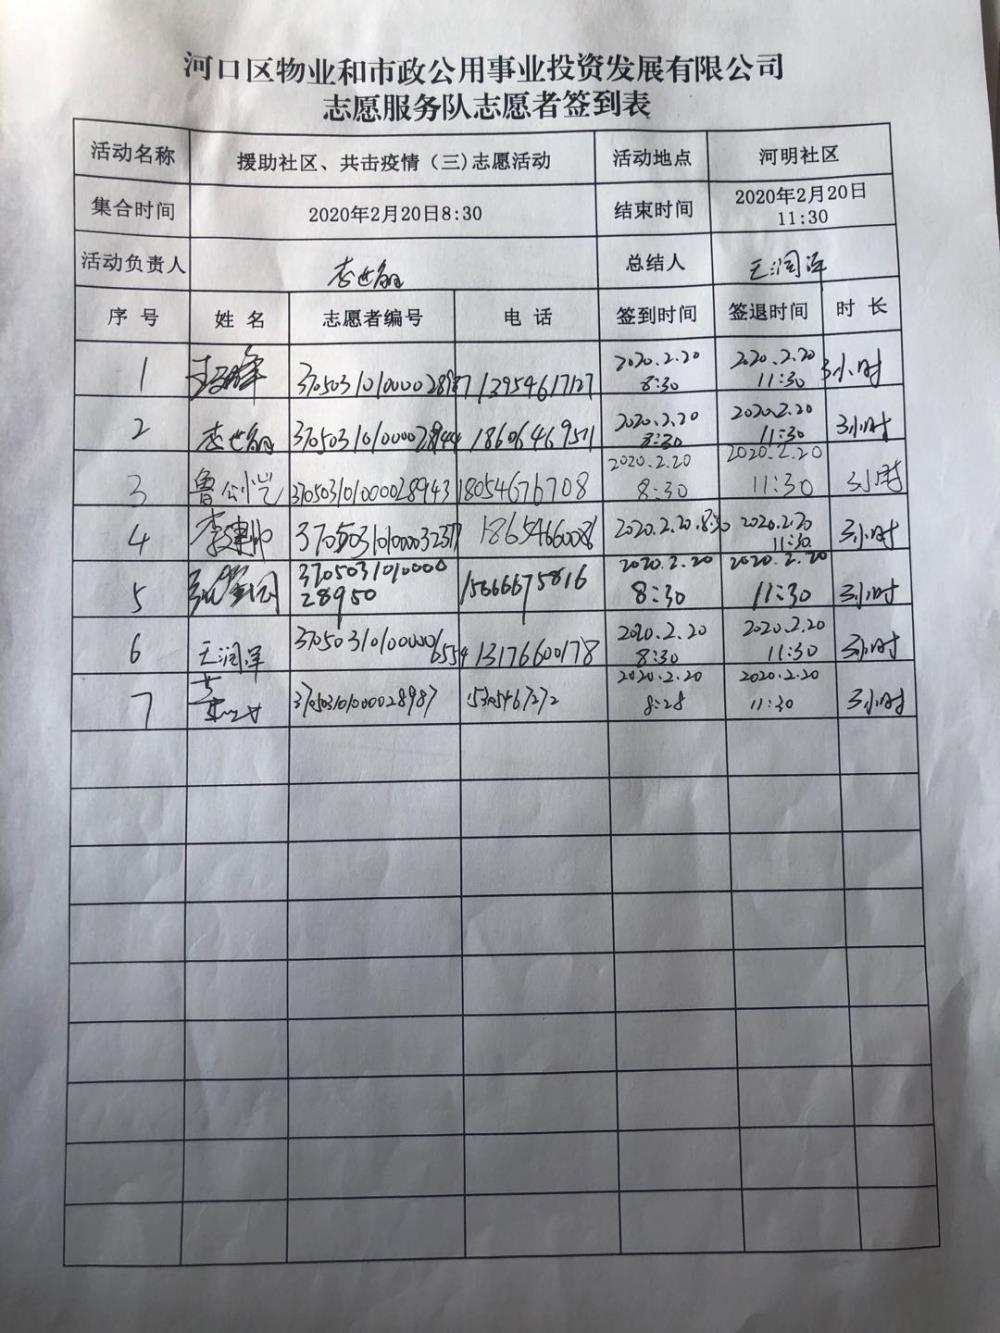 河口区物业和市政公用事业投资发展有限公司
志愿服务队志愿者签到表
活动名称 援助社区、共击疫情（三)志愿活动 活动地点 河明社区
集合时间 2020年2月20日8:30 结束时间 2020年2月20日
11:30
活动负责人 总结人 王润军
序 号 姓 名 志愿者编号 电 话 签到时间 签退时间 时 长
1 13954617127 2020.2.20 8:30 2020.2.20 11:30 3小时
2 18606469511 2020.2.20 8:30 2020.2.20 11:30 3小时
3 370503101000028943 18054676708 2020.2.20 8:30 2020.2.20 11:30 3小时
4 18654660086 2020.2.20.8:30 2020.2.20 11:30 3小时
5 3705031010000
28950 15666675816 2020.2.20 8:30 2020.2.20 11:30 3小时
6 王润军 13176600178 2020.2.20 8:30 2020.2.20 11:30 3小时
7 370503101000028987 2020.2.20 8:28 2020.2.20 11:30 3小时